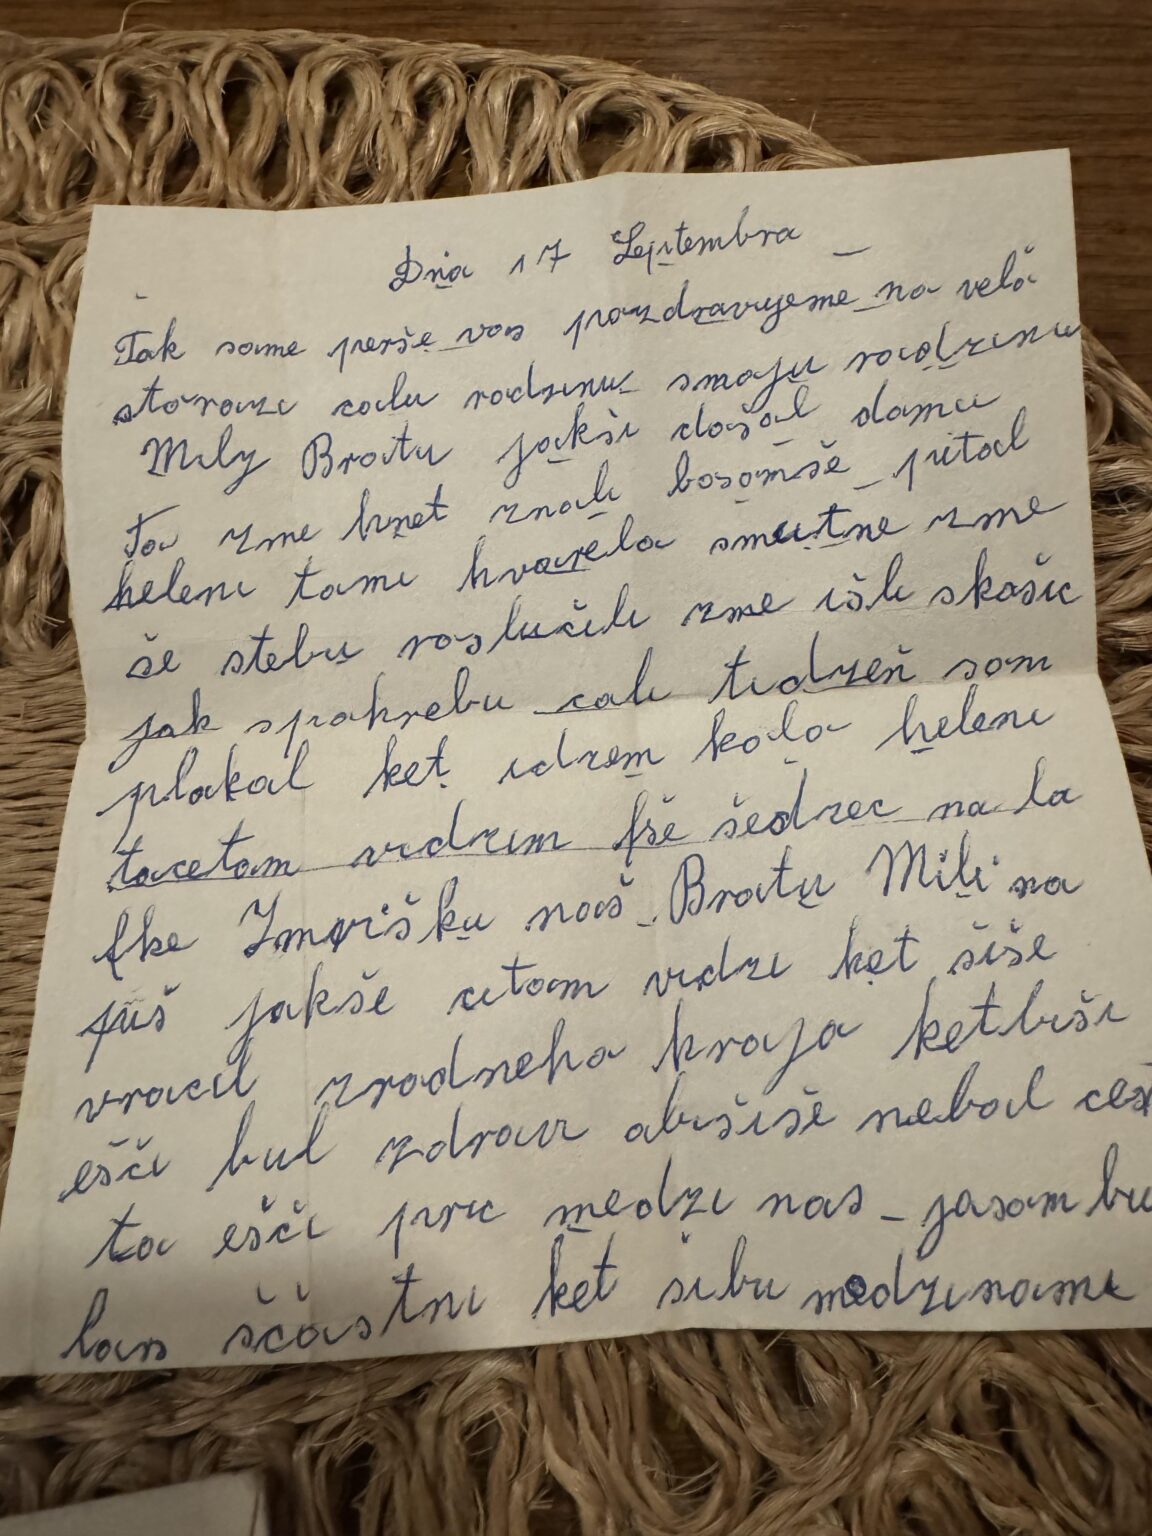 Dňa 17 Septembra
Tak same perše vas pozdravujeme na vela
storazi calu rodzinu smoju rodzinu
Mily Bratu jakši došol domu
Ta zme hnet znali bosomše pital
heleni tami hvarela smutne zme
še stebu roslučili zme išli skošic
jak spohrebu cali tidzeň som
plakal ket idzem kolo heleni
tacetam vidzim fše šedzec na la
fke Imrišku naš Bratu Mili na
juš jakše citam vidzi ket šiše
vracil zrodneho kraja ketbiši
ešči bul zdrav abišiše nebal cest
ta ešči pric medzi nas jasom bu
las ščastni ket šibu medzinami